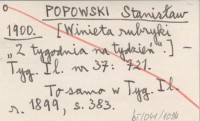 POPOWSKI Stanisław
1900. [Winieta rubryki
"Z tygodnia na tydzień".] –
Tyg. Il. nr 37: 721.
To samo w Tyg. Il.
r. 1899, s. 383.